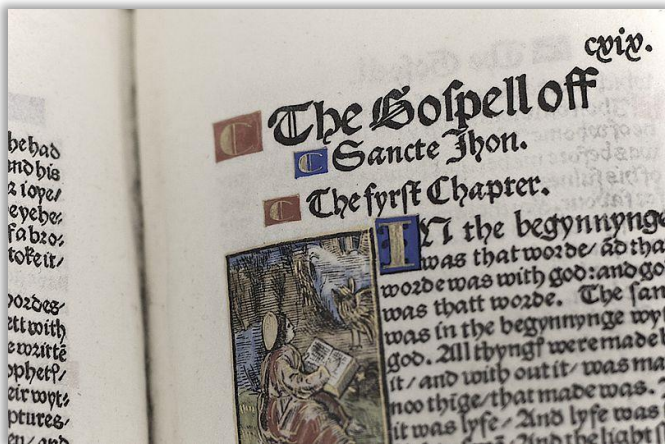 he had
and his
2 ioye/
eyehe:
f a bro:
toke it/
wordes
ett with
e writtē
ophetꝭ/
eir wyt:
ptures
en/ and
cxix.
C The Gospell off
C Sancte Jhon.
C The fyrst Chapter.
IN the begynnynge
was that worde/ ād tha
worde was with god: and go
was thatt worde. The sam
was in the begynnynge wyt
god. All thyngꝭ were made b
it/ and with out it/ was ma
noo thīge/ that made was.
it was lyfe/ And lyfe was